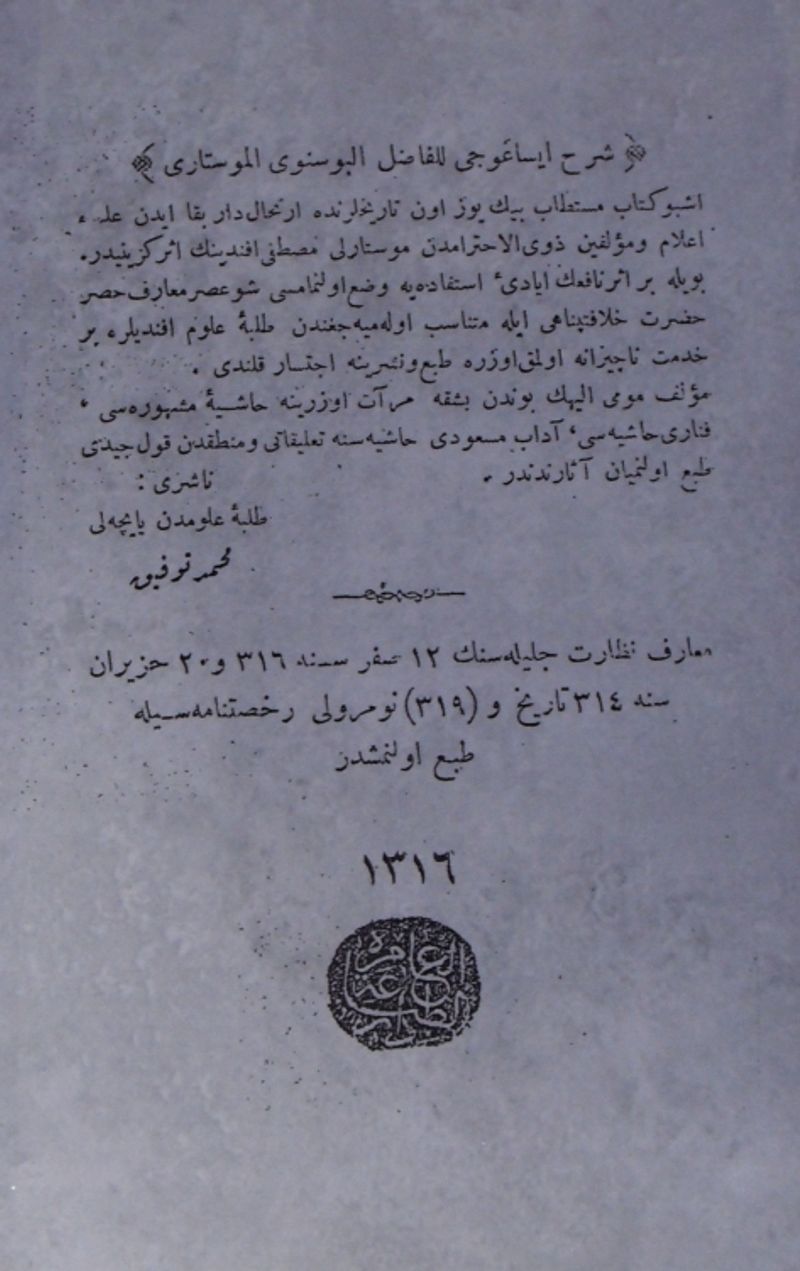 شرح ايساغوجى للفاضل البوسنوى الموستارى
اشبو كتاب مستطاب بيك يوز اون تاريخلرنده ارتحال دار بقا ايدن علماء
اعلام ومؤلفين ذوى الاحترامدن موستارلى مصطفى افندينك اثر كزينيدر.
بويله بر اثر نافعك ايادئ استفاده يه وضع اولنمامسى شو عصر معارف حصر
حضرت خلافتپناهى ايله متناسب اوله ميه جغندن طلبهٔ علوم افنديلره بر
خدمت ناچيزانه اولمق اوزره طبع ونشرينه اجتسار قلندى .
مؤلف مومى اليهك بوندن بشقه مرآت اوزرينه حاشيهٔ مشهوره سى ،
فنارى حاشيه سى ، آداب مسعودى حاشيه سنه تعليقاتى ومنطقدن قول جيدى
طبع اولنميان آثارندندر .
ناشرى :
طلبهٔ علومدن پاپچه لى
محمد توفيق
معارف نظارت جليله سنك ١٢ صفر سنه ٣١٦ و ٢٠ حزيران
سنه ٣١٤ تاريخ و (٣١٩) نومرولى رخصتنامه سيله
طبع اولنمشدر
١٣١٦